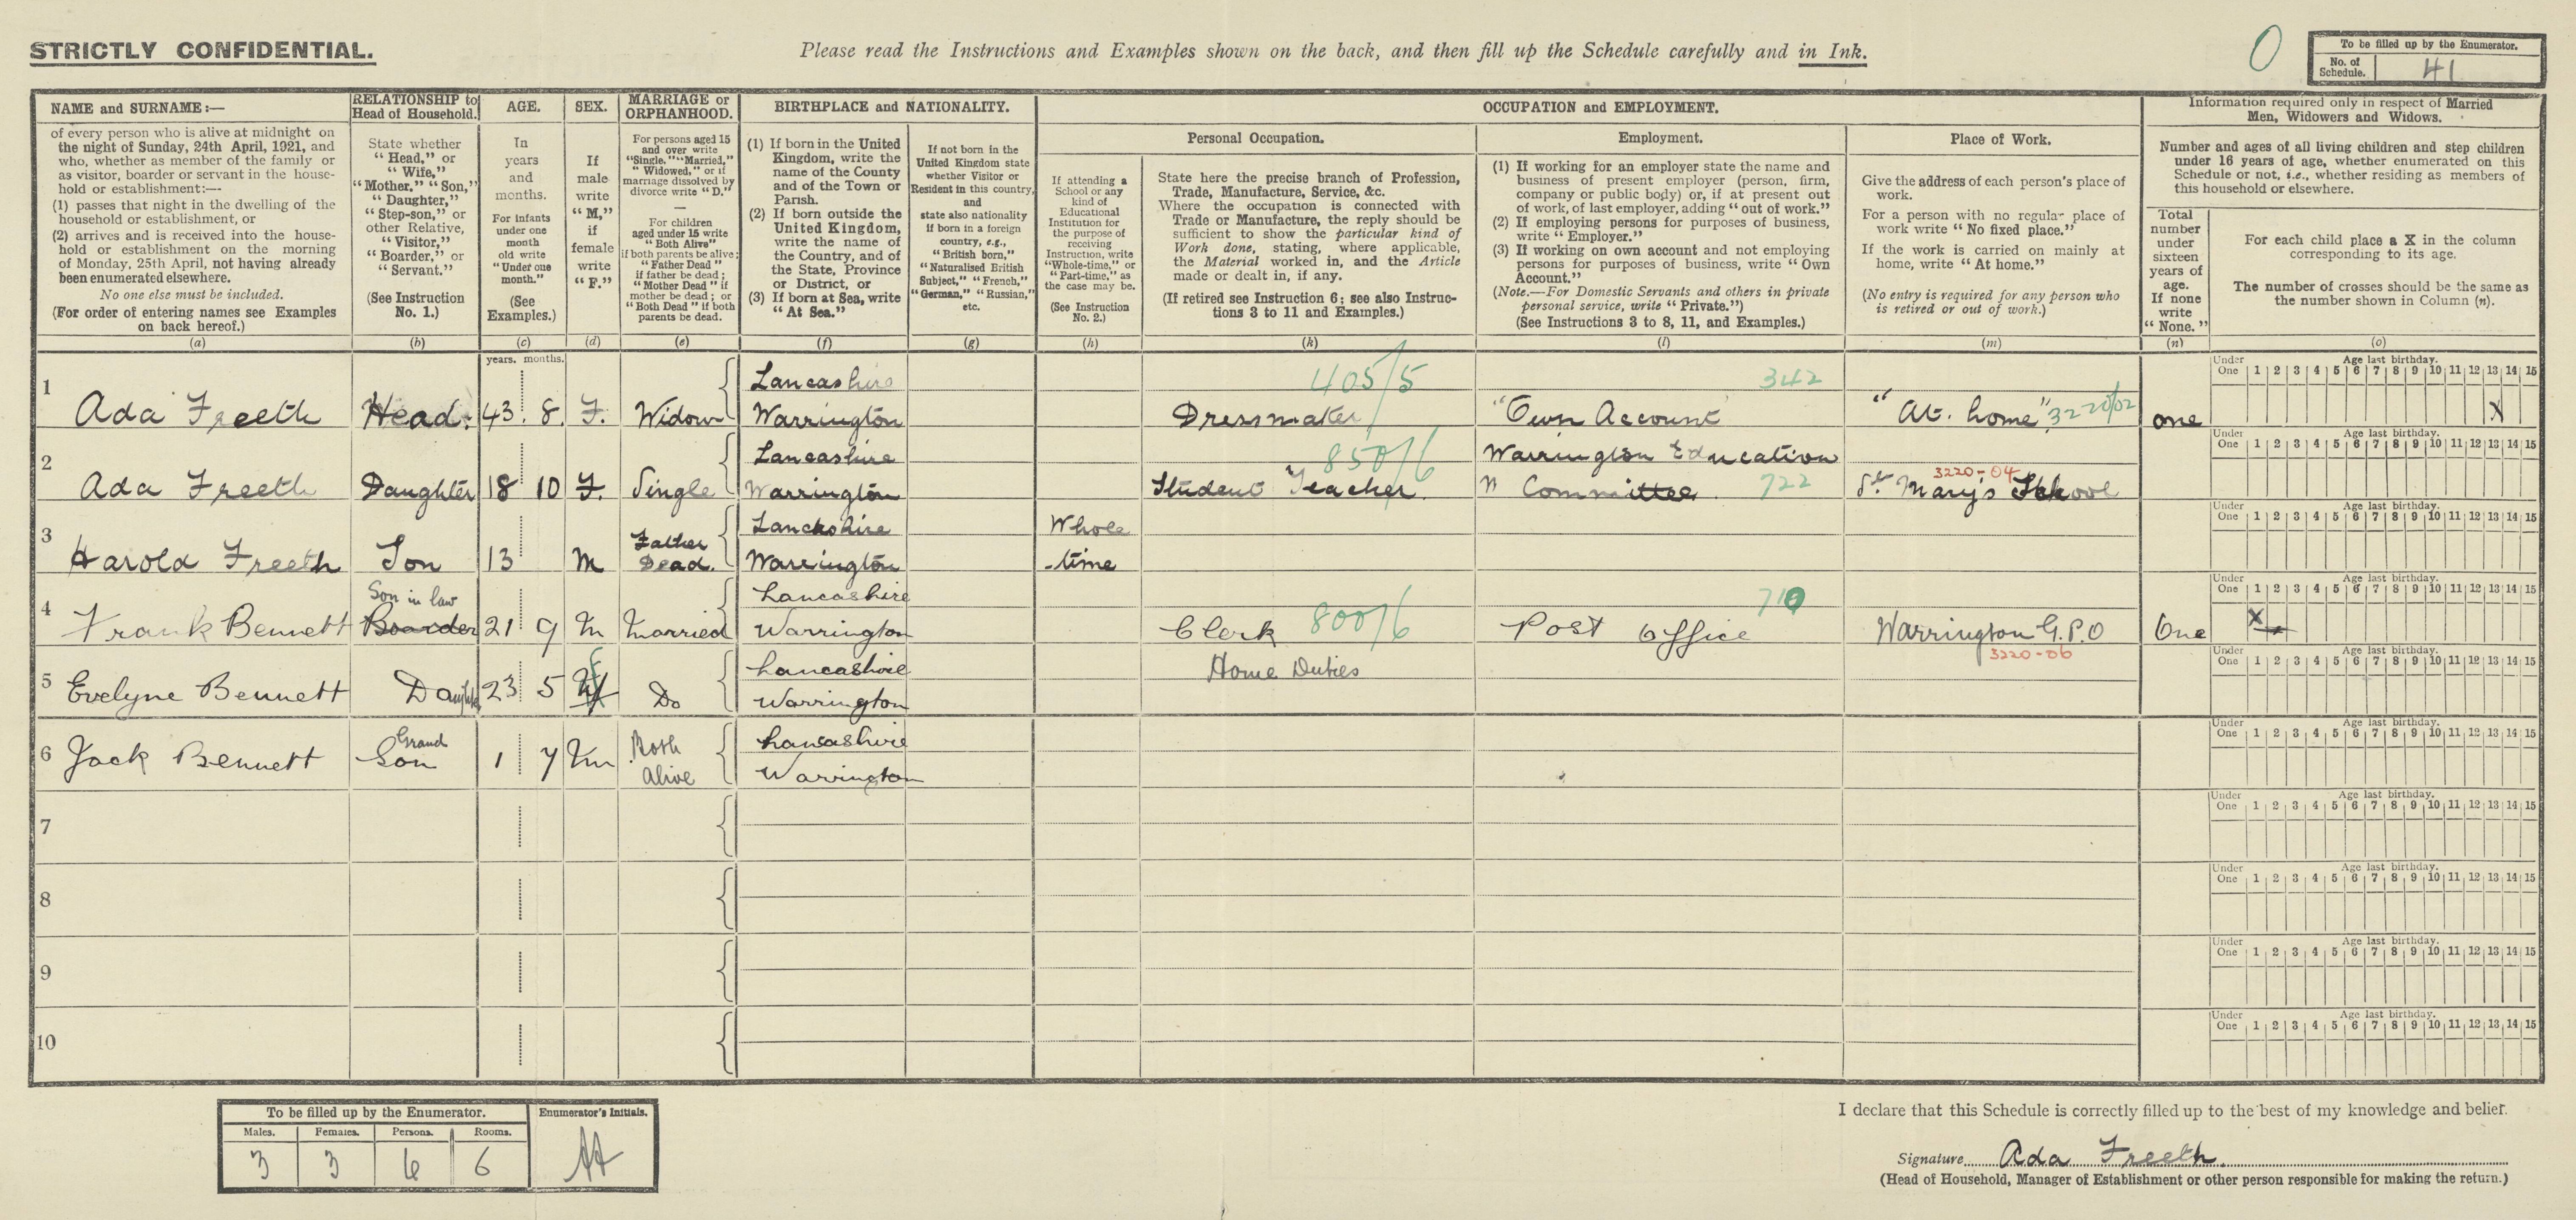 STRICTLY CONFIDENTIAL.
Please read the Instructions and Examples shown on the back, and then fill up the Schedule carefully and in Ink.
0
To be filled up by the Enumerator.
No. of Schedule. 41
NAME and SURNAME:—
of every person who is alive at midnight on
the night of Sunday, 24th April, 1921, and
who, whether as member of the family or
as visitor, boarder or servant in the house-
hold or establishment:—
(1) passes that night in the dwelling of the
household or establishment, or
(2) arrives and is received into the house-
hold or establishment on the morning
of Monday, 25th April, not having already
been enumerated elsewhere.
No one else must be included.
(For order of entering names see Examples
on back hereof.)
(a)
RELATIONSHIP to
Head of Household.
State whether
"Head," or
"Wife,"
"Mother," "Son,"
"Daughter,"
"Step-son," or
other Relative,
"Visitor,"
"Boarder," or
"Servant."
(See Instruction
No. 1.)
(b)
AGE.
In
years
and
months.
For infants
under one
month
old write
"Under one
month."
(See
Examples.)
(c)
SEX.
If
male
write
"M,"
if
female
write
"F."
(d)
MARRIAGE or
ORPHANHOOD.
For persons aged 15
and over write
"Single," "Married,"
"Widowed," or if
marriage dissolved by
divorce write "D."
—
For children
aged under 15 write
"Both Alive"
if both parents be alive;
"Father Dead"
if father be dead;
"Mother Dead" if
mother be dead; or
"Both Dead" if both
parents be dead.
(e)
BIRTHPLACE and NATIONALITY.
(1) If born in the United
Kingdom, write the
name of the County
and of the Town or
Parish.
(2) If born outside the
United Kingdom,
write the name of
the Country, and of
the State, Province
or District, or
(3) If born at Sea, write
"At Sea."
(f)
If not born in the
United Kingdom state
whether Visitor or
Resident in this country,
and
state also nationality
if born in a foreign
country, e.g.,
"British born,"
"Naturalised British
Subject," "French,"
"German," "Russian,"
etc.
(g)
OCCUPATION and EMPLOYMENT.
If attending a
School or any
kind of
Educational
Institution for
the purpose of
receiving
Instruction, write
"Whole-time," or
"Part-time," as
the case may be.
(See Instruction
No. 2.)
(h)
Personal Occupation.
State here the precise branch of Profession,
Trade, Manufacture, Service, &c.
Where the occupation is connected with
Trade or Manufacture, the reply should be
sufficient to show the particular kind of
Work done, stating, where applicable,
the Material worked in, and the Article
made or dealt in, if any.
(If retired see Instruction 6; see also Instruc-
tions 3 to 11 and Examples.)
(k)
Employment.
(1) If working for an employer state the name and
business of present employer (person, firm,
company or public body) or, if at present out
of work, of last employer, adding "out of work."
(2) If employing persons for purposes of business,
write "Employer."
(3) If working on own account and not employing
persons for purposes of business, write "Own
Account."
(Note.—For Domestic Servants and others in private
personal service, write "Private.")
(See Instructions 3 to 8, 11, and Examples.)
(l)
Place of Work.
Give the address of each person's place of
work.
For a person with no regular place of
work write "No fixed place."
If the work is carried on mainly at
home, write "At home."
(No entry is required for any person who
is retired or out of work.)
(m)
Information required only in respect of Married
Men, Widowers and Widows.
Number and ages of all living children and step children
under 16 years of age, whether enumerated on this
Schedule or not, i.e., whether residing as members of
this household or elsewhere.
Total
number
under
sixteen
years of
age.
If none
write
"None."
(n)
For each child place a X in the column
corresponding to its age.
The number of crosses should be the same as
the number shown in Column (n).
(o)
years. months.
Under One Age last birthday. 1 2 3 4 5 6 7 8 9 10 11 12 13 14 15
Lancashire 405/5 342
1 Ada Freeth Head. 43. 8. F. Widow Warrington Dressmaker "Own Account" "At. home" 3220/02 one X
Under One Age last birthday. 1 2 3 4 5 6 7 8 9 10 11 12 13 14 15
Lancashire 850/6 Warrington Education 3220-04
2 Ada Freeth Daughter 18 10 F. Single Warrington Student Teacher. " Committee. 722 St Mary's School
Under One Age last birthday. 1 2 3 4 5 6 7 8 9 10 11 12 13 14 15
Father Lancashire Whole
3 Harold Freeth Son 13 M Dead. Warrington -time
Under One Age last birthday. 1 2 3 4 5 6 7 8 9 10 11 12 13 14 15
Son in law Lancashire 710
4 Frank Bennett Boarder 21 9 M Married Warrington Clerk 800/6 Post Office Warrington G.P.O One X
3220-06
Under One Age last birthday. 1 2 3 4 5 6 7 8 9 10 11 12 13 14 15
Lancashire Home Duties
5 Evelyne Bennett Daughter 23 5 F Do Warrington
Under One Age last birthday. 1 2 3 4 5 6 7 8 9 10 11 12 13 14 15
Grand Both Lancashire
6 Jack Bennett Son 1 7 M Alive Warrington
Under One Age last birthday. 1 2 3 4 5 6 7 8 9 10 11 12 13 14 15
7
Under One Age last birthday. 1 2 3 4 5 6 7 8 9 10 11 12 13 14 15
8
Under One Age last birthday. 1 2 3 4 5 6 7 8 9 10 11 12 13 14 15
9
Under One Age last birthday. 1 2 3 4 5 6 7 8 9 10 11 12 13 14 15
10
To be filled up by the Enumerator.
Males. Females. Persons. Rooms.
3 3 6 6
Enumerator's Initials.
I declare that this Schedule is correctly filled up to the best of my knowledge and belief.
Signature Ada Freeth.
(Head of Household, Manager of Establishment or other person responsible for making the return.)